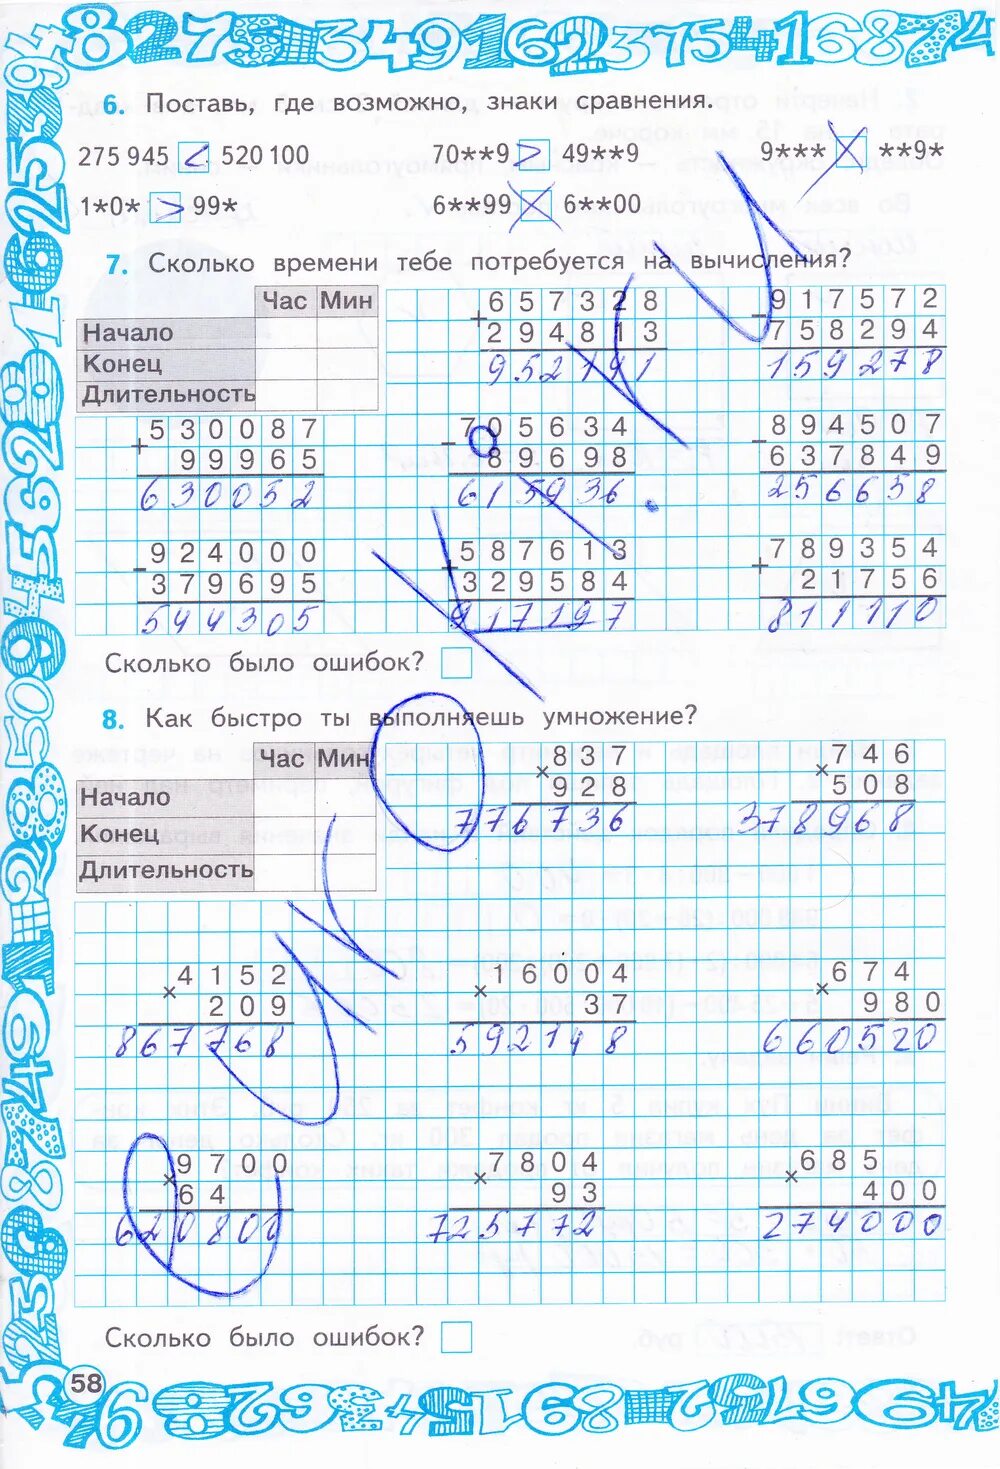 6. Поставь, где возможно, знаки сравнения.
275 945 < 520 100   70**9 > 49**9   9*** × **9*
1*0* > 99*   6**99 × 6**00
7. Сколько времени тебе потребуется на вычисления?
Час Мин
Начало
Конец
Длительность
+ 657328
294813
952141
- 917572
758294
159278
+ 530087
99965
630052
- 705634
89698
615936
- 894507
637849
256658
- 924000
379695
544305
+ 587613
329584
917197
+ 789354
21756
811110
Сколько было ошибок?
8. Как быстро ты выполняешь умножение?
Час Мин
Начало
Конец
Длительность
× 837
928
776736
× 746
508
378968
× 4152
209
867768
× 16004
37
592148
× 674
980
660520
× 9700
64
620800
× 7804
93
725772
× 685
400
274000
Сколько было ошибок?
58